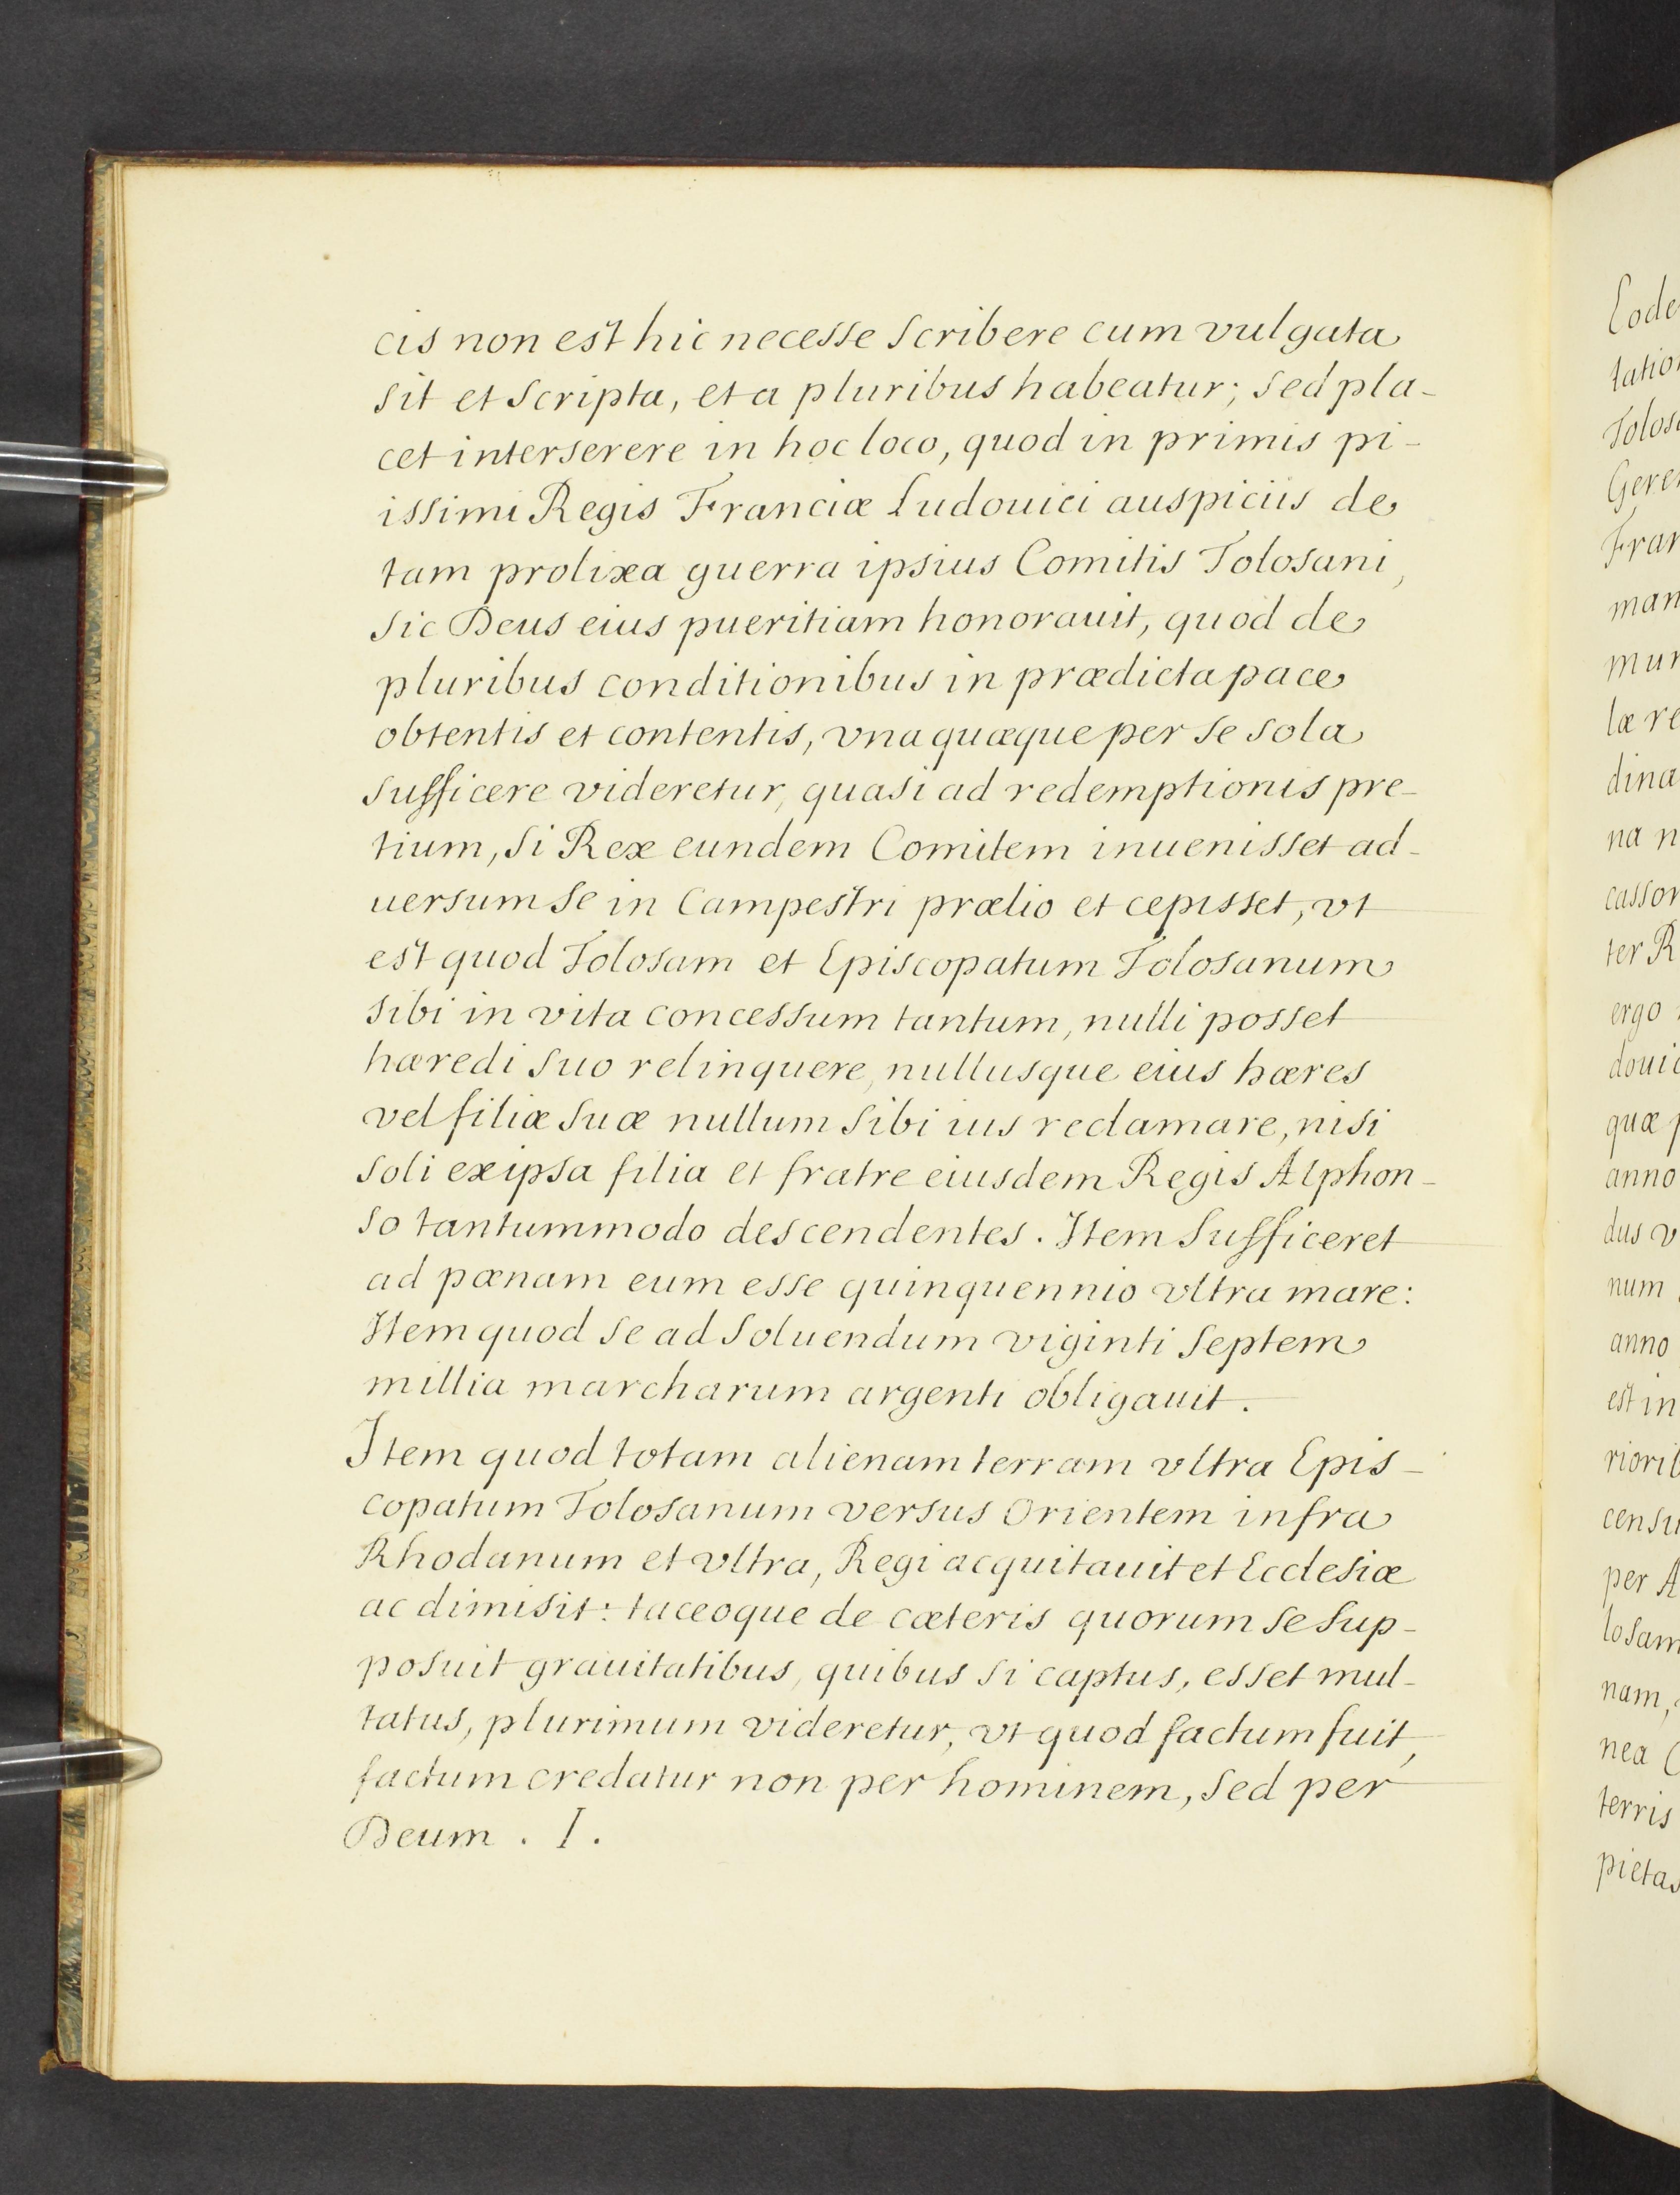 cis non est hic necesse scribere cum vulgata
sit et scripta, et a pluribus habeatur; sed pla-
cet interserere in hoc loco, quod in primis pi-
issimi Regis Franciæ Ludouici auspiciis de
tam prolixa guerra ipsius Comitis Tolosani,
sic Deus eius pueritiam honorauit, quod de
pluribus conditionibus in prædicta pace
obtentis et contentis, vna quæque per se sola
sufficere videretur, quasi ad redemptionis pre-
tium, si Rex eundem Comitem inuenisset ad-
uersum se in Campestri prælio et cepisset, vt
est quod Tolosam et Episcopatum Tolosanum
sibi in vita concessum tantum, nulli posset
hæredi suo relinquere, nullusque eius hæres
vel filiæ suæ nullum sibi ius reclamare, nisi
soli ex ipsa filia et fratre eiusdem Regis Alphon-
so tantummodo descendentes. Item sufficeret
ad pœnam eum esse quinquennio vltra mare:
Item quod se ad soluendum viginti septem
millia marcharum argenti obligauit.
Item quod totam alienam terram vltra Epis-
copatum Tolosanum versus Orientem infra
Rhodanum et vltra, Regi acquitauit et Ecclesiæ
ac dimisit: taceoque de cæteris quorum se sup-
posuit grauitatibus, quibus si captus, esset mul-
tatus, plurimum videretur, vt quod factum fuit,
factum credatur non per hominem, sed per
Deum. I.
tatio
Tolos
Gere
Fran
man
mun
læ re
dina
na n
casson
ter R
ergo
douic
quæ p
anno
dus v
num
anno
est in
riorib
censu
per A
losam
nam,
nea
terris
pietas